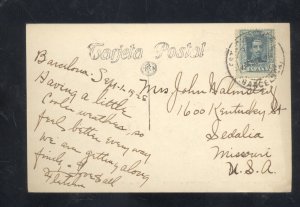 Tarjeta Postal
Barcelona. Sept. 1, 1925
Having a little
Cooler weather, so
feels better every way
We are getting along
finely.
Mrs. John Halmberg
1600 Kentucky St
Sedalia
Missouri
U.S.A.
BARCELONA